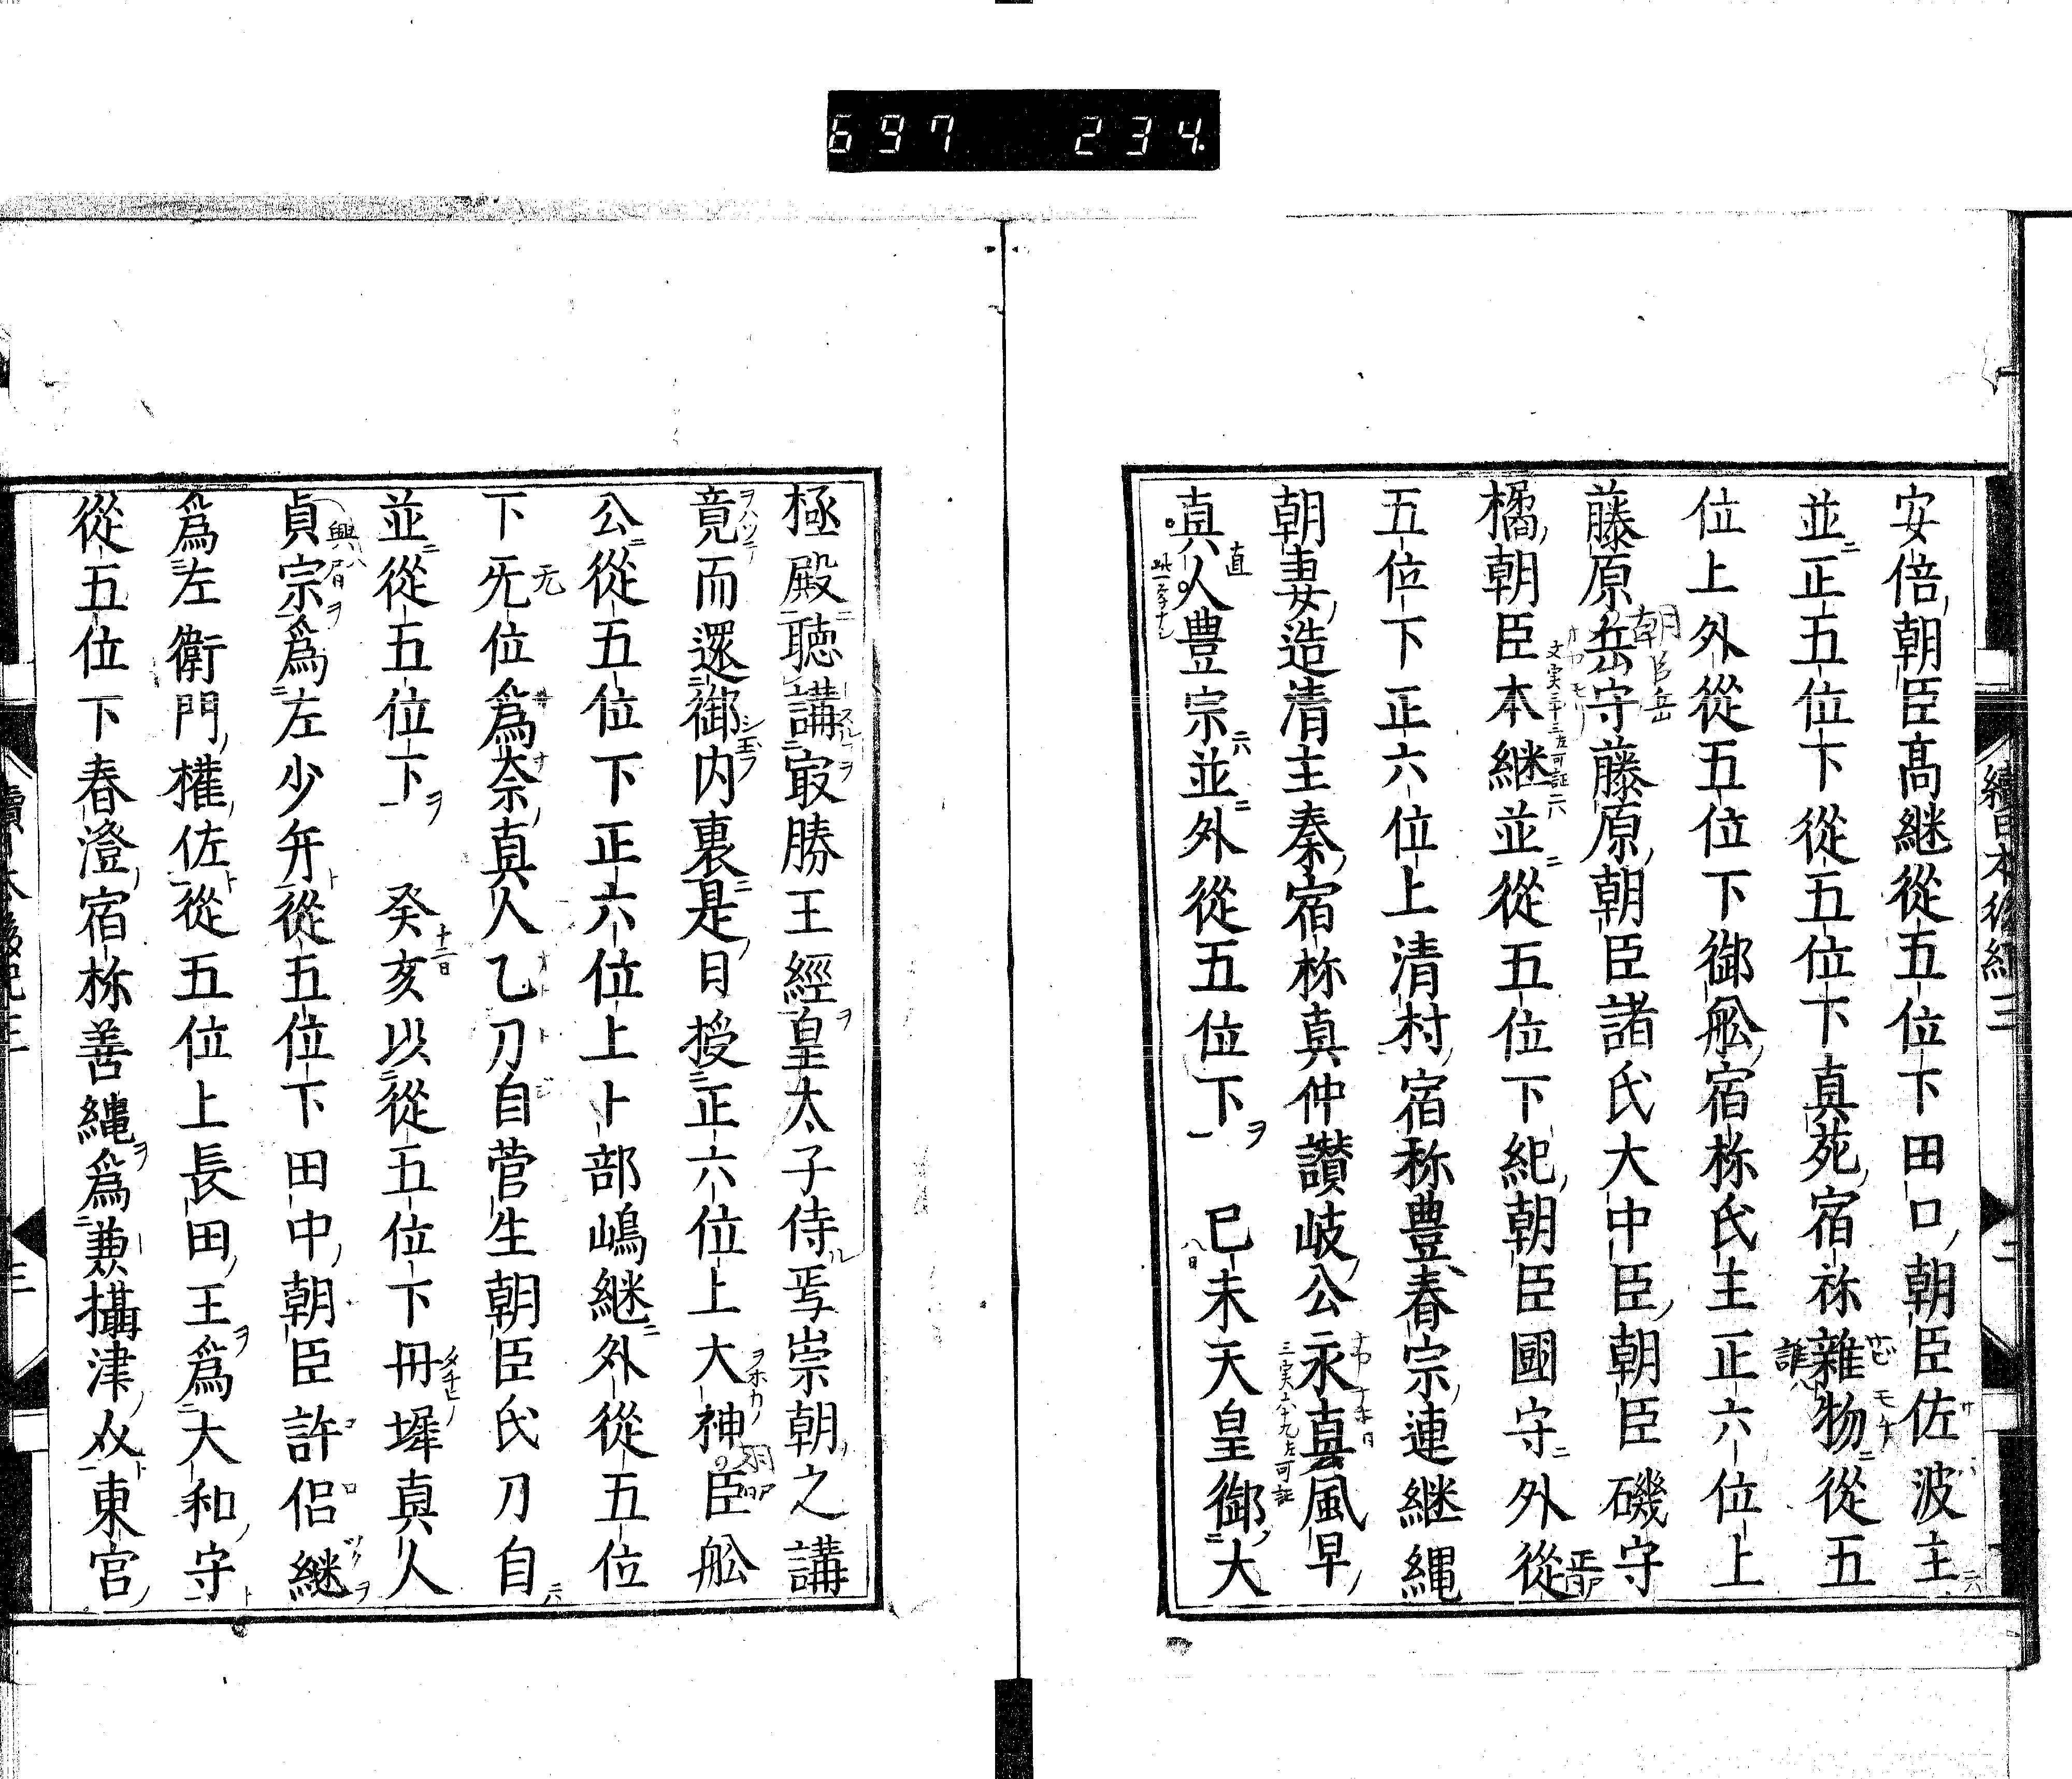 697 234
安倍朝臣髙継從五位下田口朝臣佐波主
並正五位下從五位下真苑宿祢雜物從五
位上外從五位下御舩宿祢氏主正六位上
藤原岳守藤原朝臣諸氏大中臣朝臣磯守
橘朝臣本継並從五位下紀朝臣國守外從
五位下正六位上清村宿祢豊春宗連継縄
朝妻造清主秦宿祢真仲讃岐公永真風早
真人豊宗並外從五位下 巳未天皇御大
續日本後紀三
二
極殿聴講㝡勝王經皇太子侍焉崇朝之講
竟而還御内裏是日授正六位上大神臣舩
公從五位下正六位上卜部嶋継外從五位
下旡位為奈真人乙刀自菅生朝臣氏刀自
並從五位下 癸亥以從五位下冊墀真人
貞宗為左少弁從五位下田中朝臣許侶継
為左衛門權佐從五位上長田王為大和守
從五位下春澄宿祢善縄為兼攝津㕘東宮
三